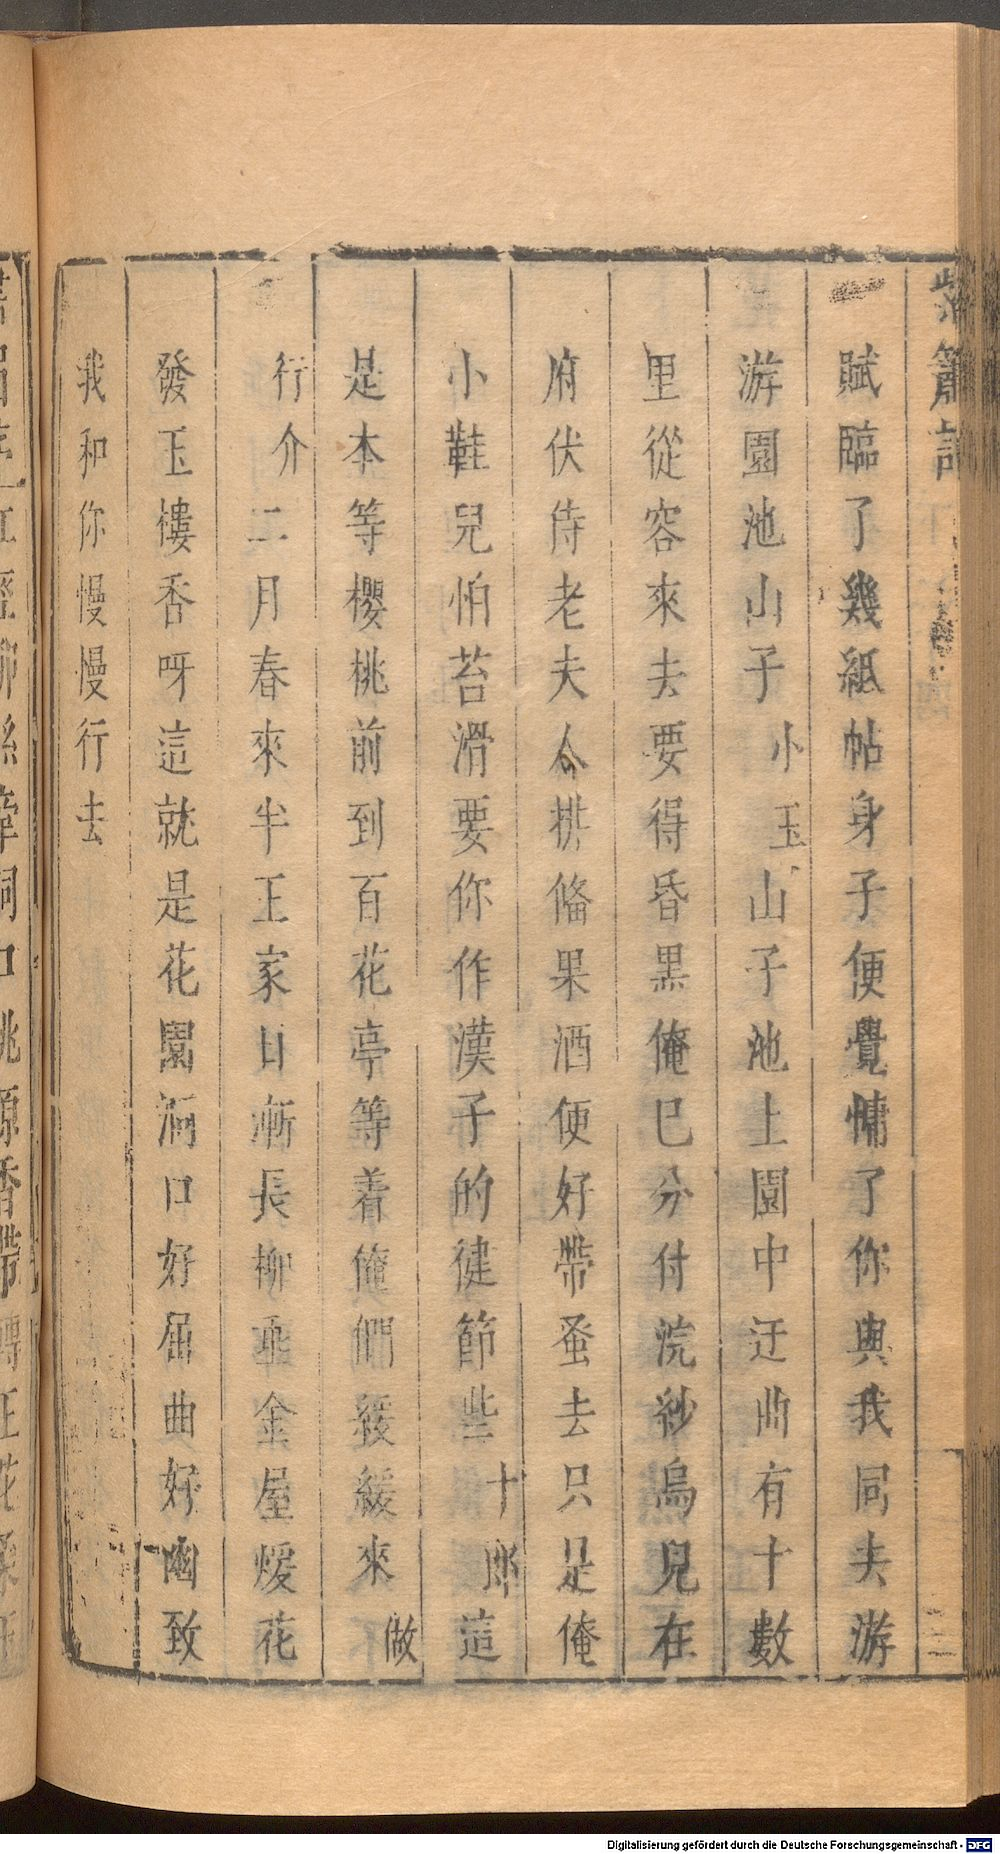 紫簫記
賦臨了幾紙帖身子便覺慵了你與我同去游
游園池山子小玉山子池上園中迂曲有十數
里從容來去要得昏黑俺已分付浣紗烏兒在
府伏侍老夫人拱俻果酒便好帶蚤去只是俺
小鞋兒怕苔滑要你作漢子的健節些十郎這
是本等櫻桃前到百花亭等着俺們緩緩來做
行介二月春來半王家日漸長柳垂金屋煖花
發玉樓香呀這就是花園洞口好屈曲好幽致
我和你慢慢行去
Digitalisierung gefördert durch die Deutsche Forschungsgemeinschaft - DFG